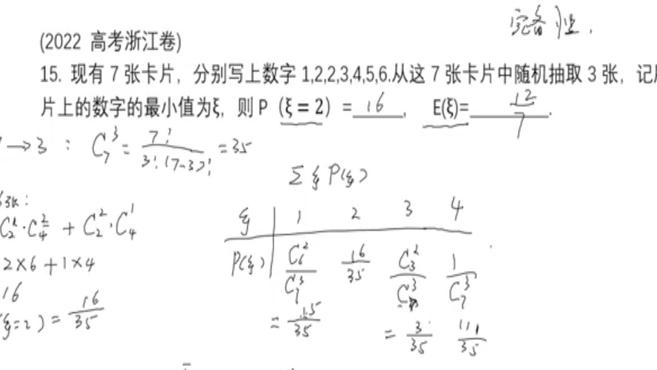 完备性.
(2022 高考浙江卷)
15. 现有 7 张卡片，分别写上数字 1,2,2,3,4,5,6.从这 7 张卡片中随机抽取 3 张，记
片上的数字的最小值为ξ，则 P（ξ = 2）= 16 ， E(ξ)= 12/7 .
→ 3 : C₇³ = 7!/3!(7-3)! = 35
Σ ξ P(ξ)
C₂¹·C₄² + C₂²·C₄¹
2×6+1×4
16
ξ=2) = 16/35
ξ 1 2 3 4
P(ξ) C₆²/C₇³ 16/35 C₃²/C₇³ 1/C₇³
= 15/35 = 3/35 1/35